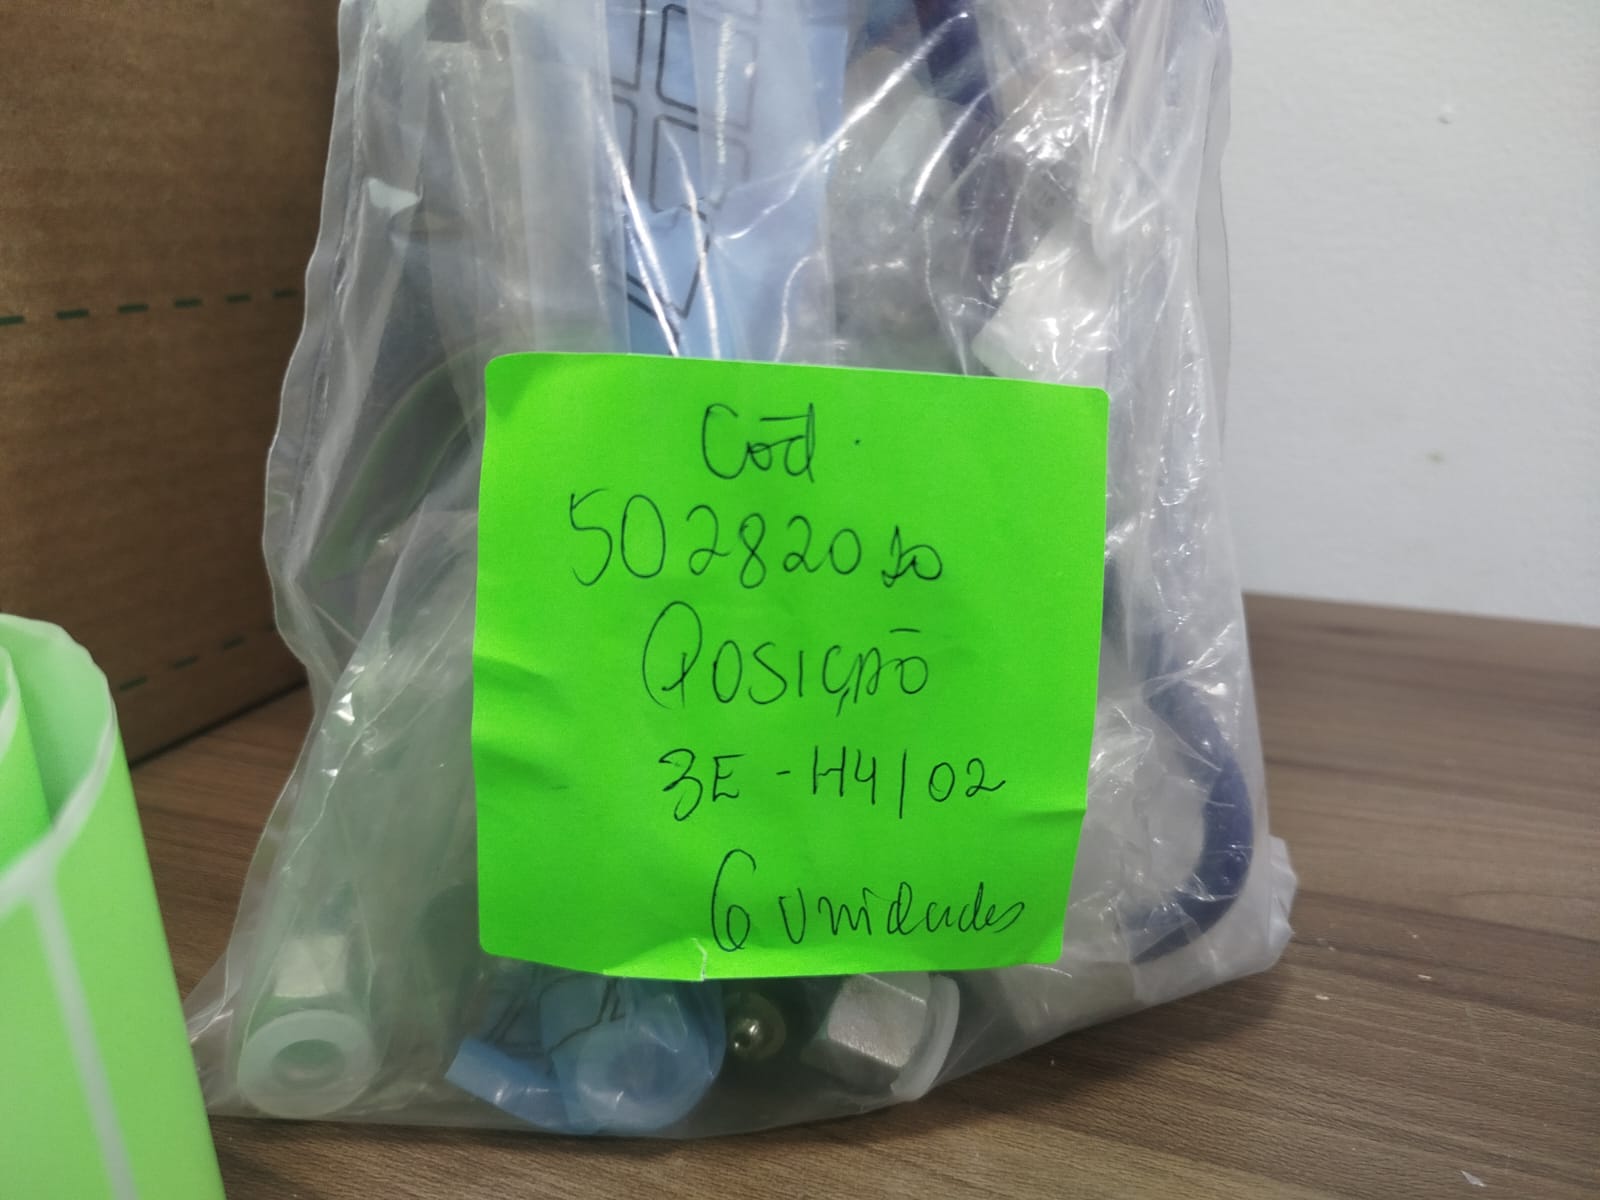 Cód.
50282010
Posição
3E-H4/02
6 unidades